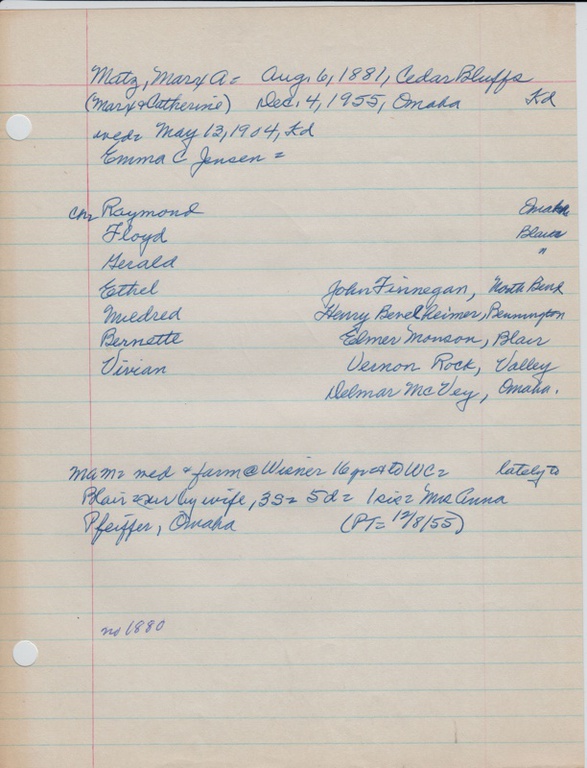 Matz, Marx A = Aug. 6, 1881, Cedar Bluffs
(Marx & Catherine) Dec. 4, 1955, Omaha Kd
wed = May 13, 1904, Kd
Emma C Jensen =
ch = Raymond Omaha
Floyd Blair
Gerald "
Ethel John Finnegan, North Bend
Mildred Henry Bendheimer, Bennington
Bernette Elmer Monson, Blair
Vivian Vernon Rock, Valley
Delmar McVey, Omaha.
mam = wed & farm @ Wisner 16 yr & to WC = lately to
Blair = sur by wife, 3s = 5d = 1 sis = Mrs Anna
Pfeiffer, Omaha (PT = 12/8/55)
no 1880